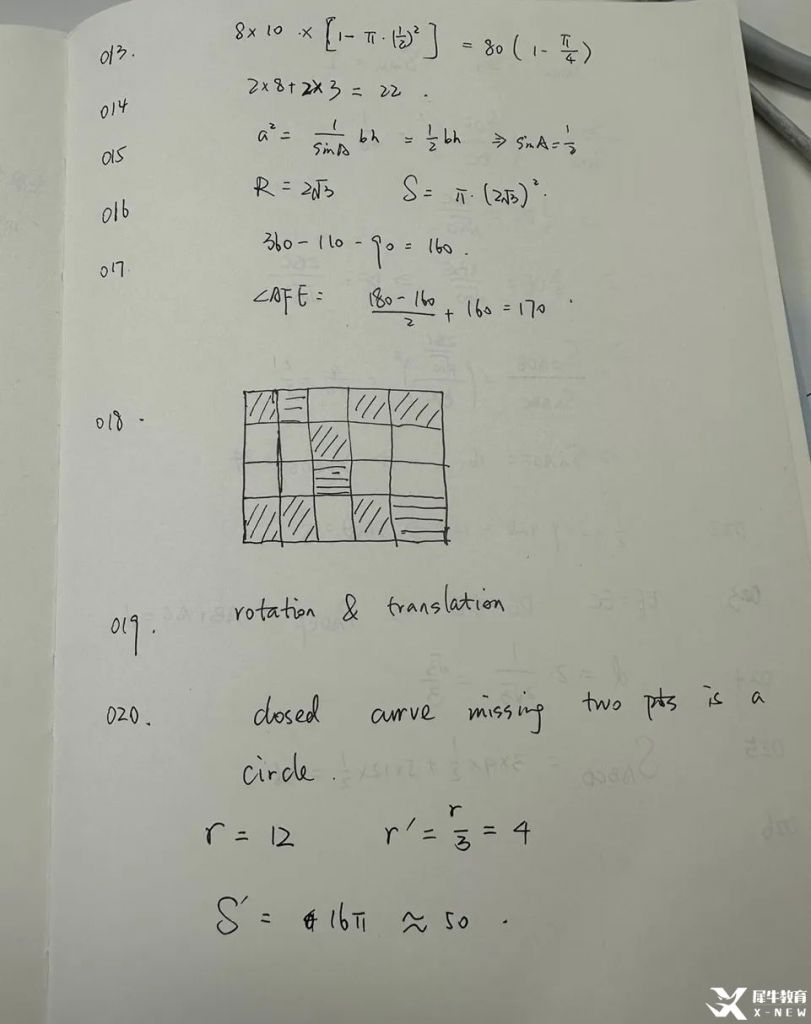 013. 8×10 × [1 - π · (1/2)²] = 80 (1 - π/4)
014 2×8+2×3 = 22 .
015 a² = 1/sinA bh = 1/2 bh ⇒ sinA = 1/2
016 R = 2√3 S = π · (2√3)² .
017 360 - 110 - 90 = 160 .
∠AFE = (180 - 160)/2 + 160 = 170 .
018 .
019. rotation & translation
020. closed curve missing two pts is a
circle .
r = 12 r' = r/3 = 4
S' = 16π ≈ 50 .
犀牛教育
X-NEW